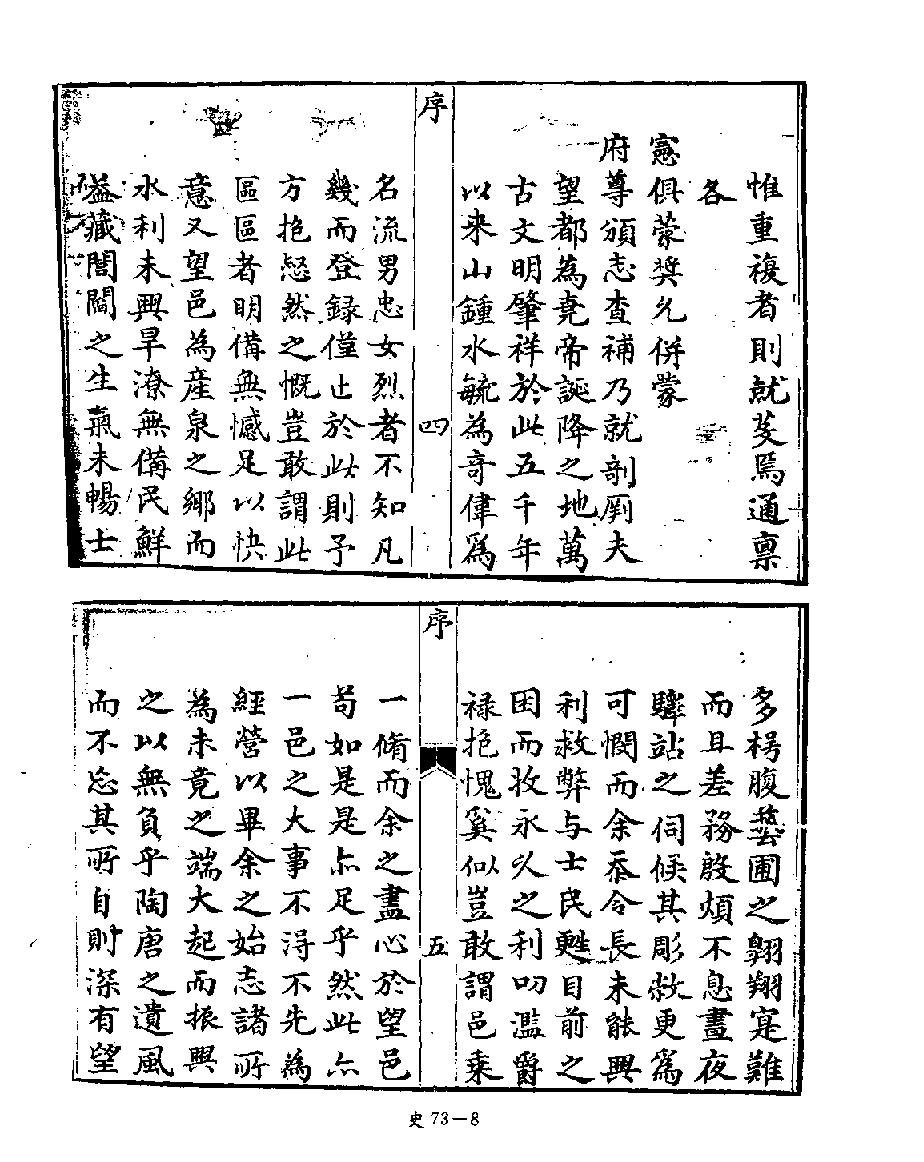 惟重複者則就芟焉通稟
各
憲俱蒙奬允併蒙
府尊頒志查補乃就剞劂夫
望都為堯帝誕降之地萬
古文明肇祥於此五千年
以来山鍾水毓為奇偉為
序
四
名流男忠女烈者不知凡
幾而登録僅止於此則予
方抱怒然之慨豈敢謂此
區區者明備無憾足以快
意又望邑為産泉之鄉而
水利未興旱潦無備民鮮
葢藏閭閻之生氣未暢士
多枵腹藝圃之翱翔寔難
而且差務殷煩不息晝夜
驛站之伺候其彫敝更為
可憫而余忝令長未能興
利救弊与士民甦目前之
困而收永久之利叨濫爵
禄抱愧奚似豈敢謂邑乗
序
五
一脩而余之盡心於望邑
苟如是是亦足乎然此亦
一邑之大事不淂不先為
經營以畢余之始志諸所
為未竟之端大起而振興
之以無負乎陶唐之遺風
而不忘其所自則深有望
史 73—8